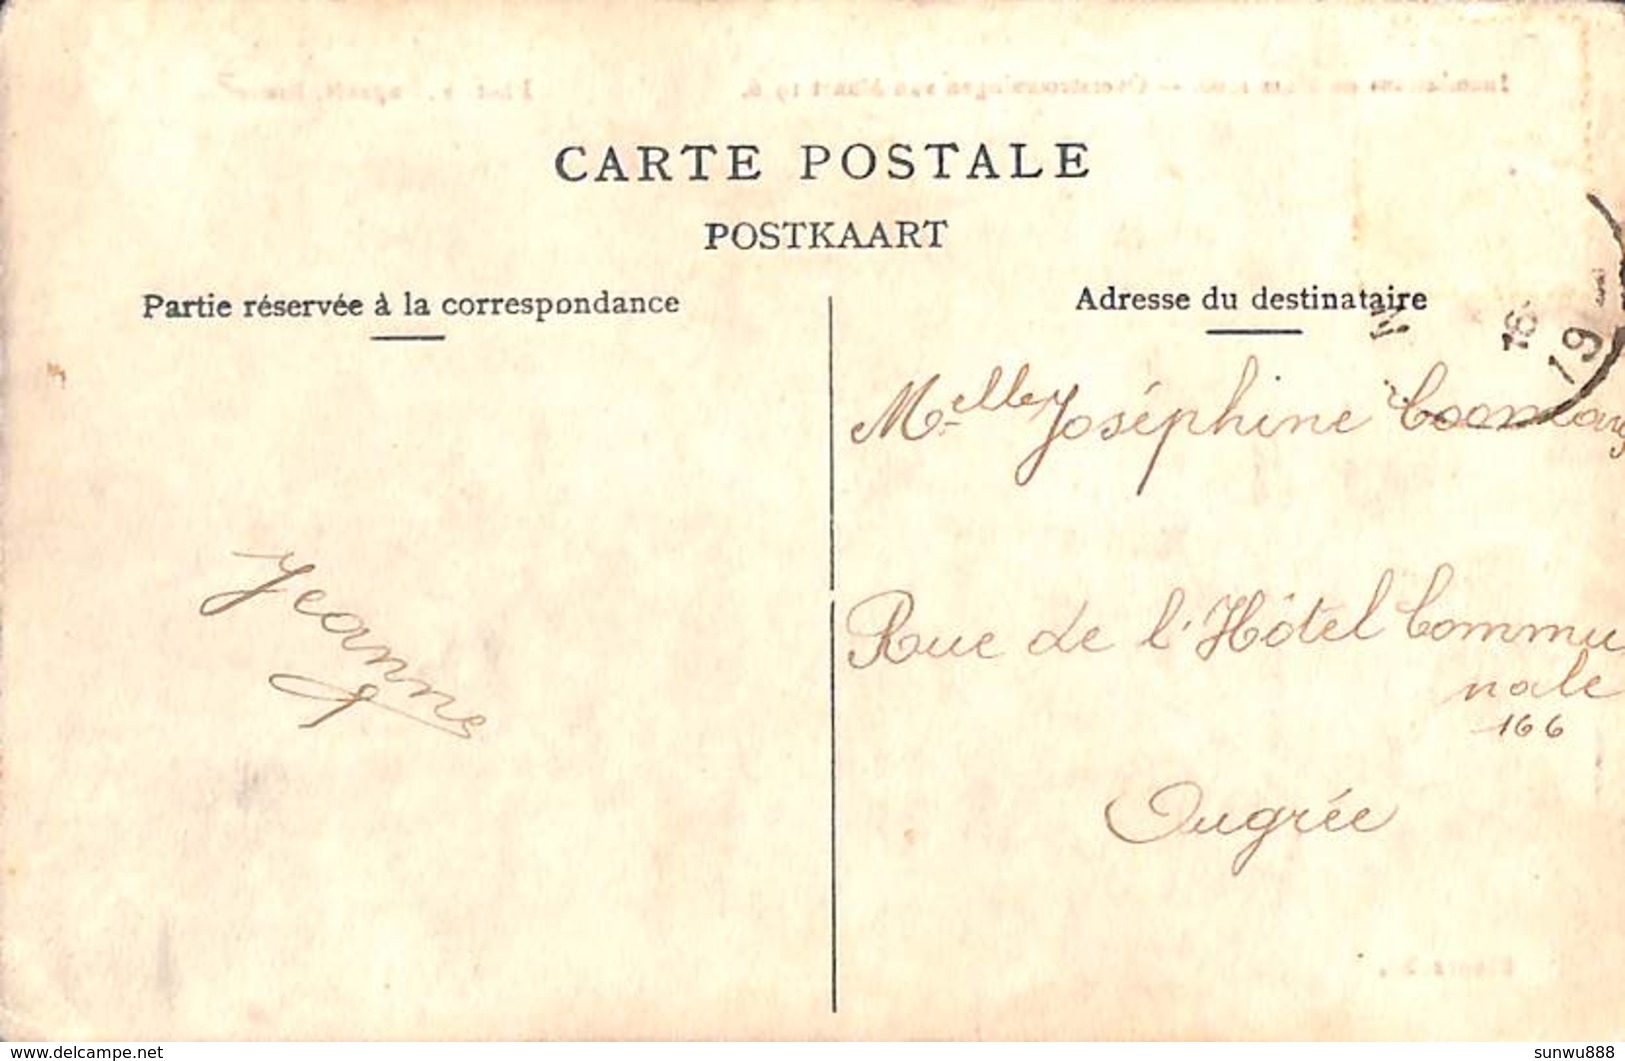 CARTE POSTALE
POSTKAART
Partie réservée à la correspondance
Adresse du destinataire
16
19
Melle Joséphine
Rue de l'Hôtel Commu
nale
166
Ougrée
Jeanne
sunwu888